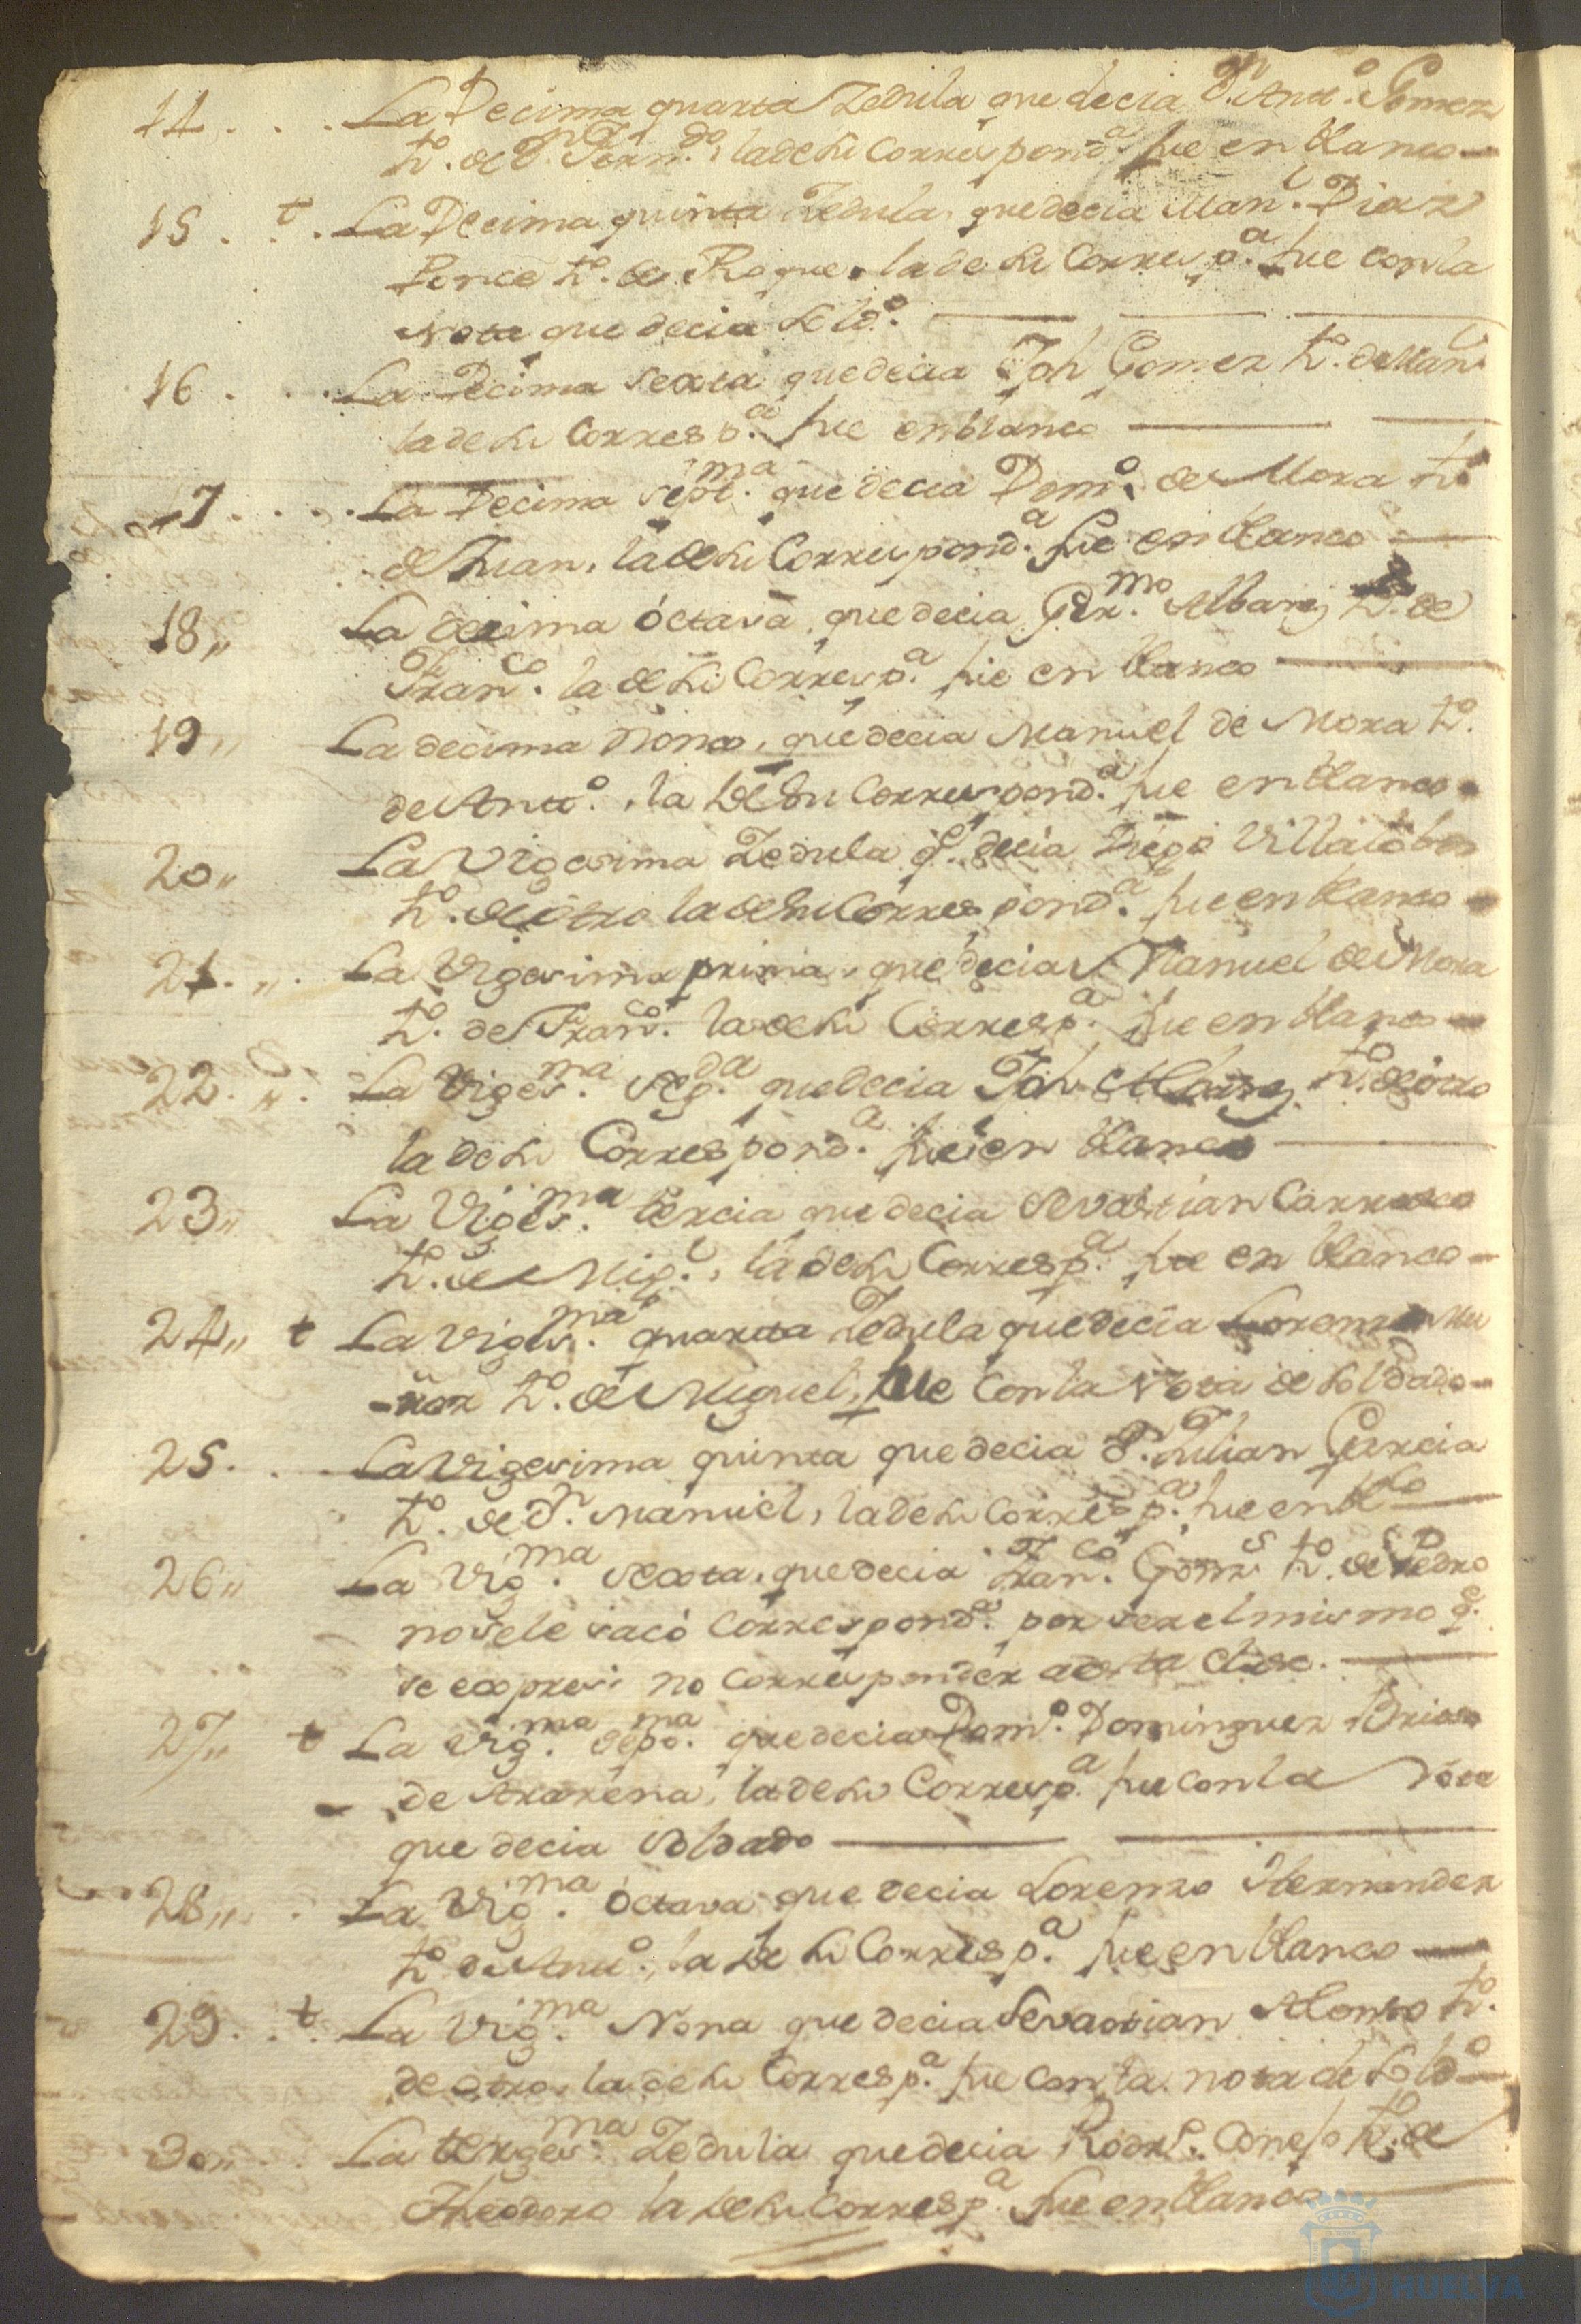 14 . . . La Decima quarta Zedula que decia Dn. Anto. Gomez
ho. de Dn. Ferndo., la de su Correspondª. fue en blanco —
15 . t . La Decima quinta Zedula, que decia Manl. Diaz
Ponce ho. de Roque, la de su Corresp.ª fue con la
Nota que decia Soldo. —
16 . . . La Decima sexta que decia Jph Gomez ho. de Manl.
la de su Corresp.ª fue en blanco —
17 . . . . La Decima septma. que decia Domo. de Mora ho.
de Juan, la de su Correspond.ª fue en blanco —
18 ,, La decima octava, que decia Germo. Albarez ho. de
Franco. la de su Corresp.ª fue en blanco —
19 ,, La decima Nona, que decia Manuel de Mora ho.
de Anto., la de su Correspond.ª fue en blanco —
20 ,, La Vigesima Zedula q.e decia Diego Villalobos
ho. de otro la de su Correspond.ª fue en blanco —
21 . ,, . La Vigesima prima, que decia Manuel de Mora
ho. de Franco. la de su Corresp.ª fue en blanco —
22 . ,, . La Vigesma. segda. que decia Jph Albarez ho. de otro
la de su Correspond.ª fue en blanco —
23 ,, La Vigesma. tercia que decia Sevastian Carrasco
ho. de Migl., la de su Corresp.ª fue en blanco —
24 ,, t La Vigesma. quarta Zedula que decia Lorenzo Mu
-ñoz ho. de Miguel, fue con la Nota de Soldado —
25 . . La Vigesima quinta que decia Dn. Julian Garcia
ho. de Dn. Manuel, la de su Corresp.ª fue en blco —
26 ,, La Vigma. sexta, que decia Franco. Gomz ho. de Pedro
no se le sacó Correspond.ª por ser el mismo q.e
se expresó no corresponder a esta clase. —
27 ,, t La Vigma. sepma. que decia Domo. Dominguez Brioso
de Aracena, la de su Corresp.ª fue con la Nota
que decia Soldado —
28 ,, . La Vigma. octava que decia Lorenzo Hernandez
ho de Anto., la de su Corresp.ª fue en blanco —
29 . . t . La Vigma. Nona que decia Sevastian Alonso ho.
de otro, la de su Corresp.ª fue con la nota de Soldo —
30 ,, . . La trigesma. Zedula que decia Rodrl. Conejo ho. de
Theodoro la de su Corresp.ª fue en blanco —
HUELVA